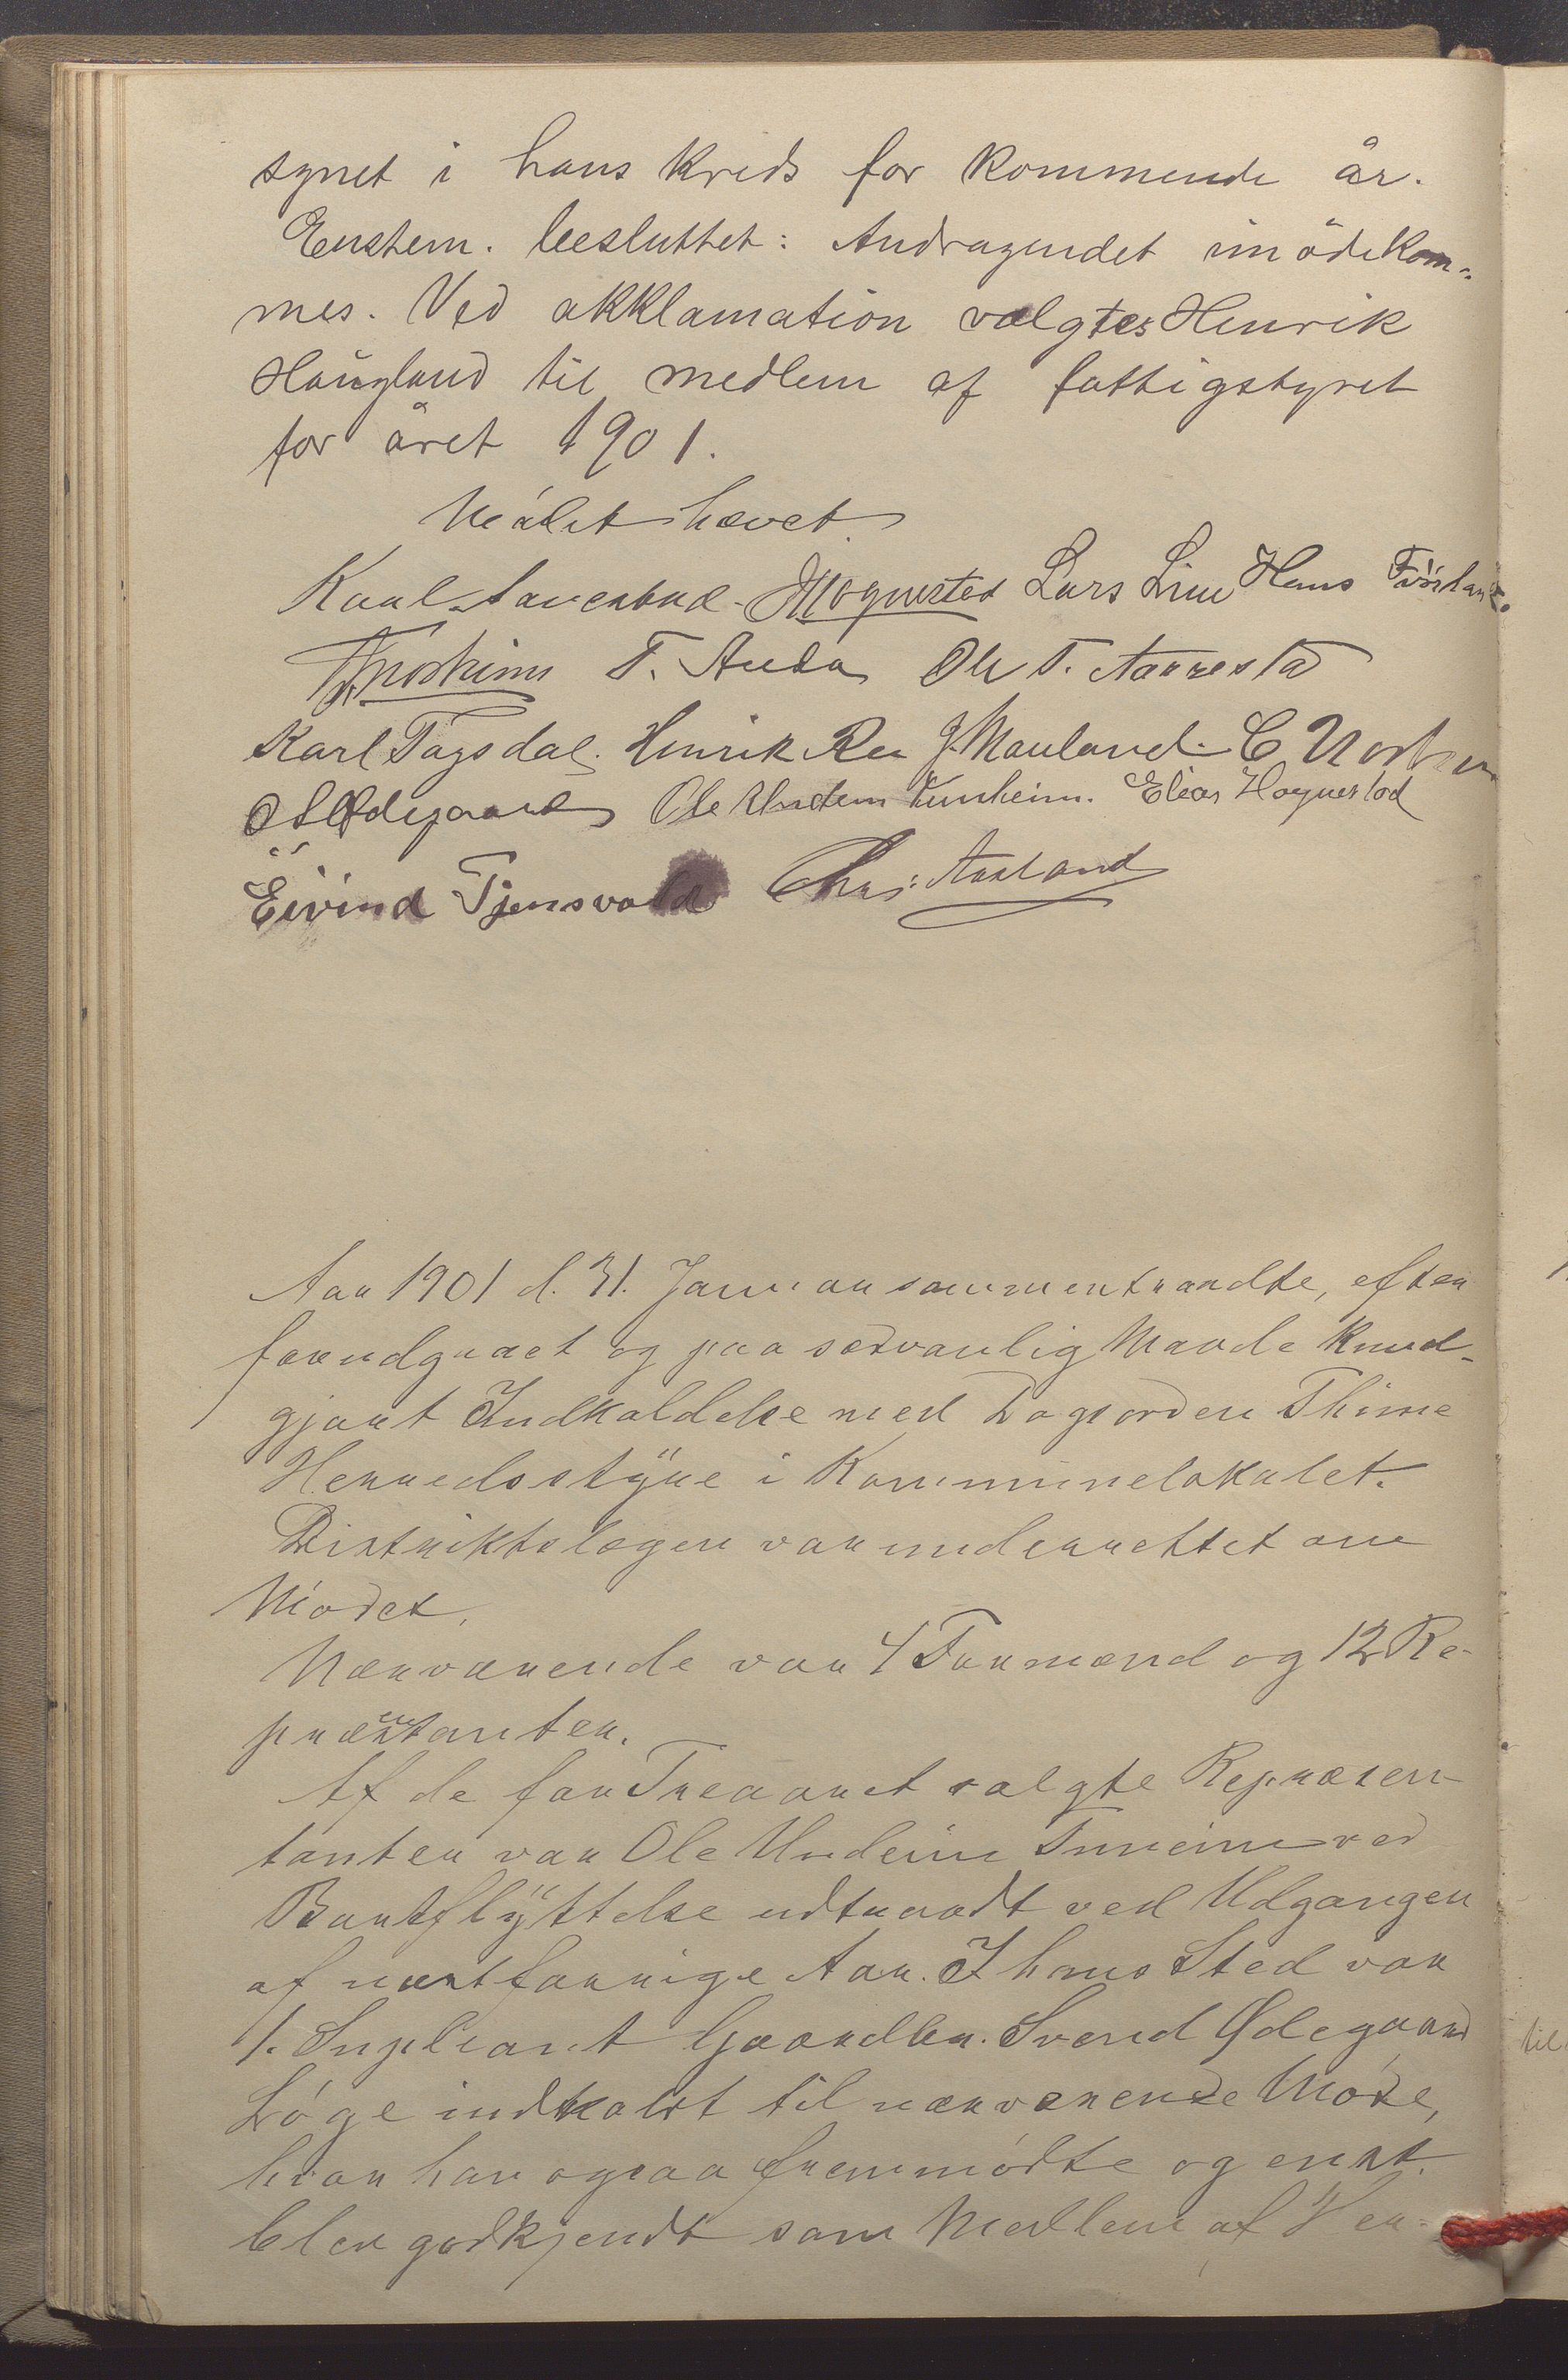 synet i hans Kreds for Kommende år.
Enstem. besluttet: Andragendet imödekom-
mes. Ved akklamation valgtes Henrik
Håugland til medlem af fattigstyret
for året 1901.
Mödet hævet.
Lars Line Hans
T. Auda Ole T. Aarrestad
Karl Tagsdal. Henrik Re J. Mauland. C
Ödegaard Ole Undem Tunheim. Elias Hognestad
Eivind Tjensvold Chr: Aasland
Aar 1901 d. 31. Januar sammentraadte, efter
forudgaaet og paa sedvanlig Maade Kund-
gjort Indkaldelse med Dagsorden Thime
Herredsstÿre i Kommunelokalet.
Distriktslægen var underrettet om
Mödet.
Nærværende var 4 Formænd og 12 Re-
præsentanter.
Af de for Treaaret valgte Repræsen-
tanter var Ole Undeim Tunheim ved
Bortflÿttelse udtraadt ved Udgangen
af næstforrige Aar. I hans Sted var
1. Supleant Gaardbr. Svend Ødegaard
Löge indkaldt til nærværende Möde,
hvor han ogsaa fremmödte og enst.
blev godkjendt som Medlem af Her-
til